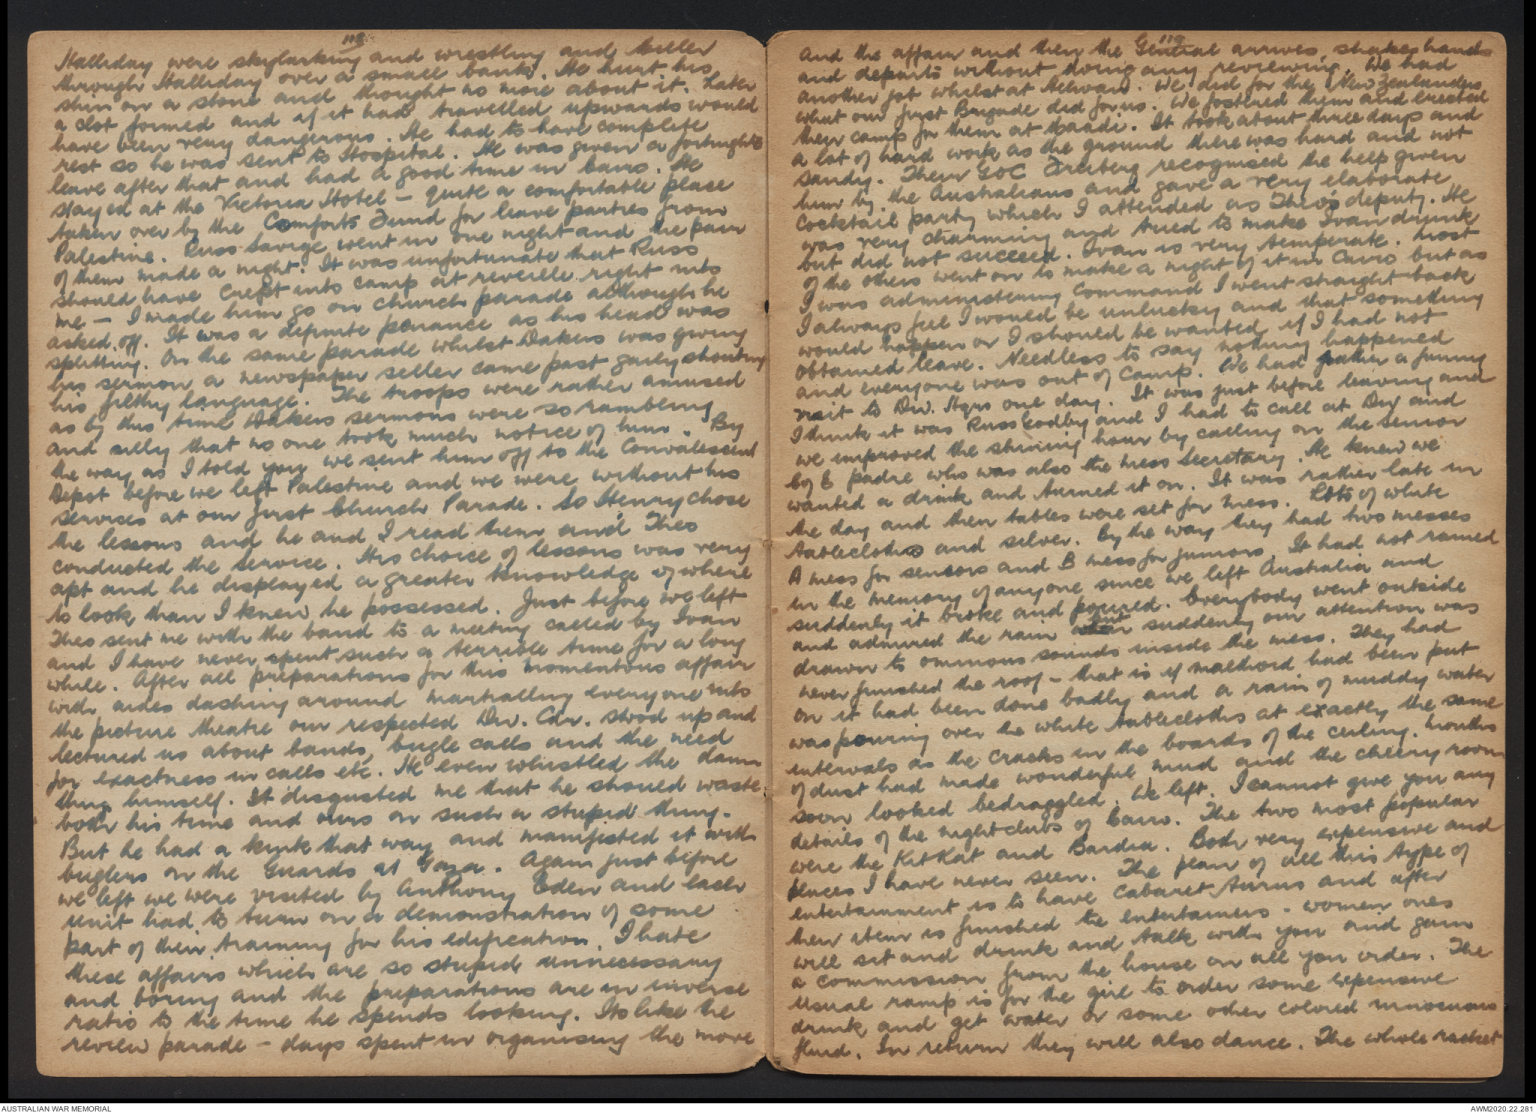 118
Halliday were skylarking and wrestling and Miller
through Halliday over a small bank. He hurt his
shin on a stone and thought no more about it. Later
a clot formed and if it had travelled upwards would
have been very dangerous. He had to have complete
rest so he was sent to Hospital. He was given a fortnights
leave after that and had a good time in Cairo. He
stayed at the Victoria Hotel - quite a comfortable place
taken over by the Comforts Fund for leave parties from
Palestine. Russ Savige went in one night and the pair
of them made a night. It was unfortunate that Russ
should have crept into camp at reveille right into
me - I made him go on church parade although he
asked off. It was a definite penance as his head was
splitting. On the same parade whilst Dakers was giving
his sermon a newspaper seller came past gaily shouting
his filthy language. The troops were rather amused
as by this time Dakers sermons were so rambling
and silly that no one took much notice of him. By
the way as I told you we sent him off to the Convalescent
Depot before we left Palestine and we were without his
services at our first Church Parade. So Henry chose
the lessons and he and I read them and Theo
conducted the service. His choice of lessons was very
apt and he displayed a greater knowledge of where
to look than I knew he possessed. Just before we left
Theo sent me with the band to a meeting called by Ivan
and I have never spent such a terrible time for a long
while. After all preparations for this momentous affair
with aides dashing around marshalling everyone into
the picture theatre our respected Div. Cdr. stood up and
lectured us about bands, bugle calls and the need
for exactness in calls etc. He even whistled the damn
thing himself. It disgusted me that he should waste
both his time and ours on such a stupid thing.
But he had a kynk that way and manifested it with
buglers on the Guards at Gaza. Again just before
we left we were visited by Anthony Eden and each
unit had to turn on a demonstration of some
part of their training for his edification. I hate
these affairs which are so stupid unnecessary
and boring and the preparations are in inverse
ratio to the time he spends looking. Its like the
review parade - days spent in organising the move
119
and the affair and then the General arrives, shakes hands
and departs without doing any reviewing. We had
another job whilst at Helwan. We did for the New Zealanders
what our first Brigade did for us. We fostered them and erected
their camp for them at Maadi. It took about three days and
a lot of hard work as the ground there was hard and not
sandy. Their GOC Freiberg recognised the help given
him by the Australians and gave a very elaborate
Cocktail party which I attended as Theo's deputy. He
was very charming and tried to make Ivan drunk
but did not succeed. Ivan is very temperate. Most
of the others went on to make a night of it in Cairo but as
I was administering Command I went straight back
I always feel I would be unlucky and that something
would happen or I should be wanted if I had not
obtained leave. Needless to say nothing happened
and everyone was out of Camp. We had rather a funny
visit to Div. Hqrs one day. It was just before leaving and
I think it was Russ Godby and I had to call at Div and
we improved the shining hour by calling on the Senior
C of E padre who was also the mess secretary. He knew we
wanted a drink and turned it on. It was rather late in
the day and their tables were set for mess. Lots of white
tablecloths and silver. By the way they had two messes
A mess for seniors and B mess for juniors. It had not rained
in the memory of anyone since we left Australia and
suddenly it broke and poured. Everybody went outside
and admired the rain but suddenly our attention was
drawn to ominous sounds inside the mess. They had
never finished the roof - that is if malthoid had been put
on it had been done badly and a rain of muddy water
was pouring over the white tablecloths at exactly the same
intervals as the cracks in the boards of the ceiling. Months
of dust had made wonderful mud and the cheery room
soon looked bedraggled. We left. I cannot give you any
details of the nightclubs of Cairo. The two most popular
were the KitKat and Bardia. Both very expensive and
places I have never seen. The plan of all this type of
entertainment is to have cabaret turns and after
their item is finished the entertainers - women ones
will sit and drink and talk with you and gain
a commission from the house on all you order. The
usual ramp is for the girl to order some expensive
drink and get water or some other colored innocuous
fluid. In return they will also dance. The whole racket
AUSTRALIAN WAR MEMORIAL
AWM2020.22.281